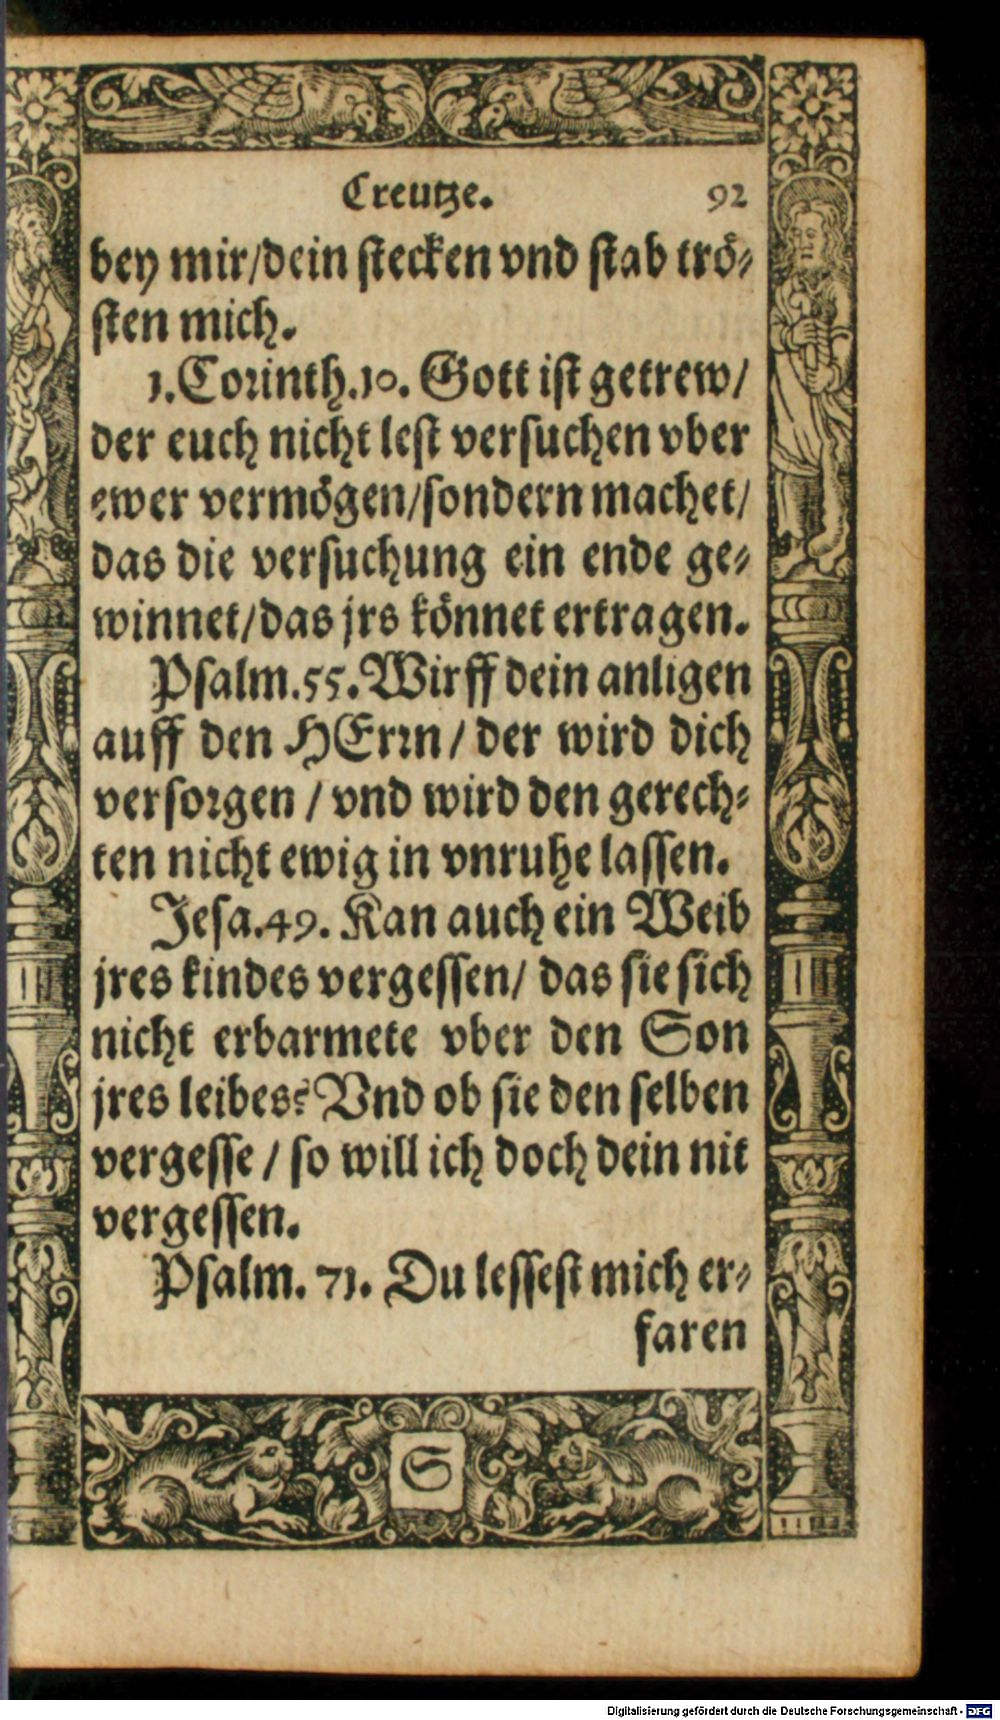 Creutze. 92
bey mir/dein stecken vnd stab trö-
sten mich.
1.Corinth.10. Gott ist getrew/
der euch nicht lest versuchen vber
ewer vermögen/sondern machet/
das die versuchung ein ende ge-
winnet/das jrs könnet ertragen.
Psalm.55. Wirff dein anligen
auff den HErrn / der wird dich
versorgen / vnd wird den gerech-
ten nicht ewig in vnruhe lassen.
Jesa.49. Kan auch ein Weib
jres kindes vergessen/ das sie sich
nicht erbarmete vber den Son
jres leibes? Vnd ob sie den selben
vergesse / so will ich doch dein nit
vergessen.
Psalm. 71. Du lessest mich er-
faren
S
Digitalisierung gefördert durch die Deutsche Forschungsgemeinschaft - DFG